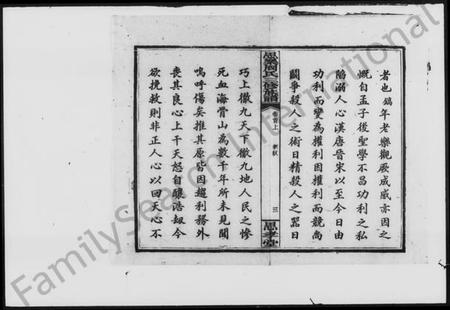 者也編年老樂觀厥成咸亦因之
慨自孟子後聖學不昌功利之私
陷溺人心漢唐晉宋以至今日由
功利而變為權利因權利而競尚
鬬爭殺人之術日精殺人之器日
卷首上
三
思孝堂
巧上徹九天下徹九地人民之慘
死血海骨山為數千年所未見聞
嗚呼傷矣推其原皆因趨利務外
喪其良心上干天怒自釀浩劫今
欲挽救則非正人心以回天心不
FamilySearch International